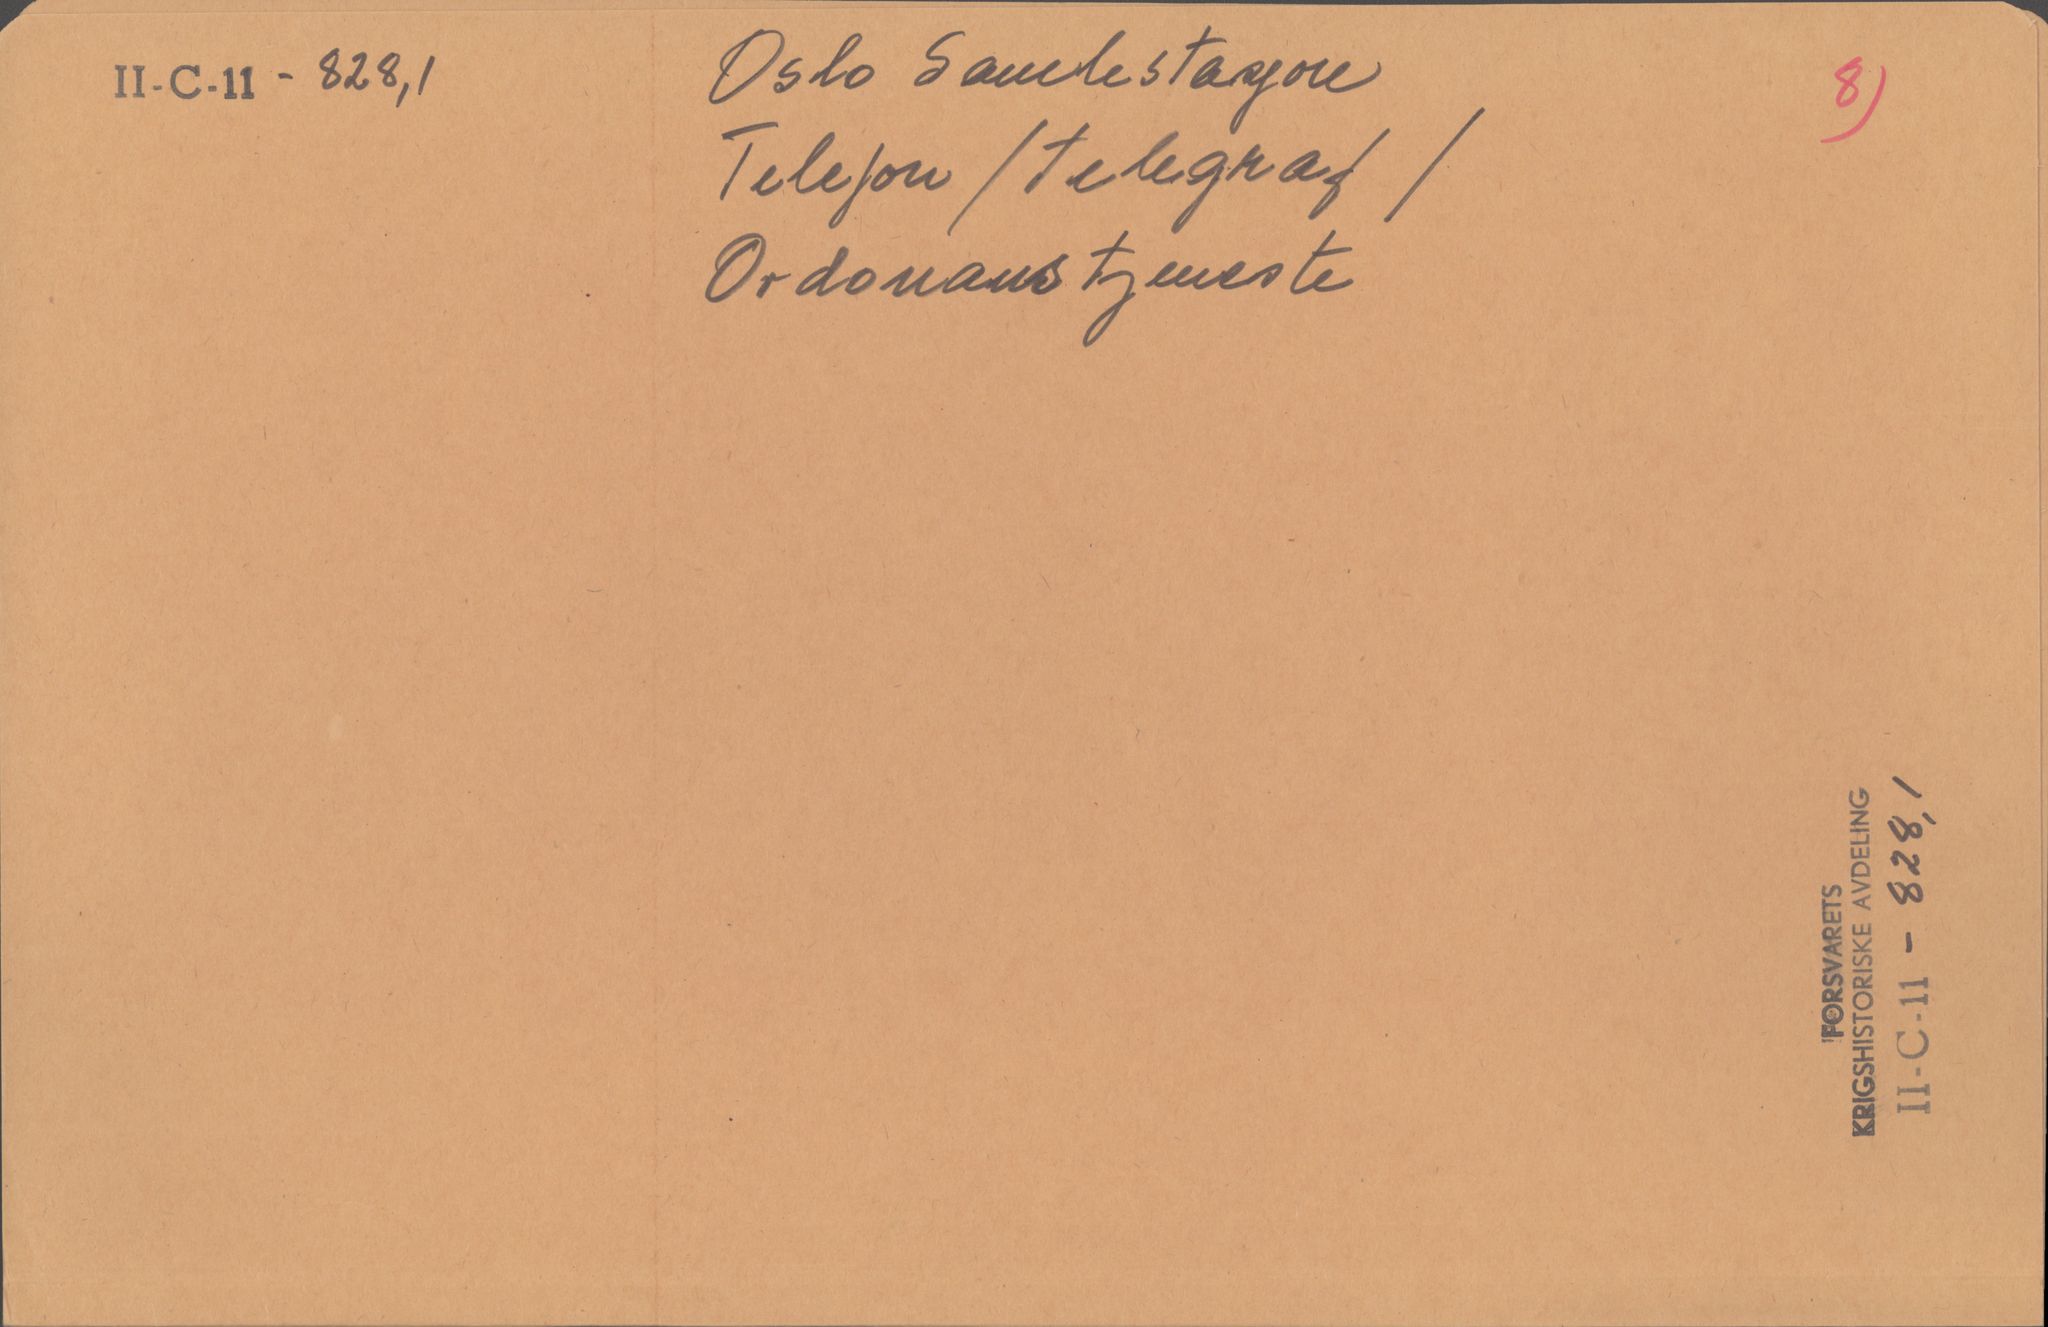 II-C-11 - 828,1
Oslo Samlestasjon
Telefon / telegraf /
Ordonanstjeneste
8)
FORSVARETS
KRIGSHISTORISKE AVDELING
II-C-11 - 828,1